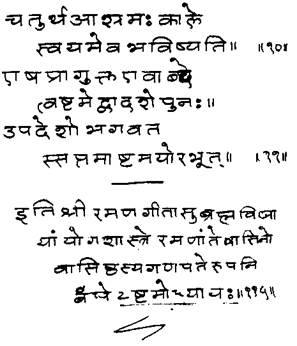 चतुर्थआश्रमः काले
स्वयमेव भविष्यति॥ ॥१०॥
एष प्रागुक्त एवाब्दे
त्वष्टमे द्वादशे पुनः॥
उपदेशो भगवत
स्सप्तमाष्टमयोरभूत्॥ ॥११॥
इति श्री रमणगीतासु ब्रह्मविद्या
यां योगशास्त्रे रमणांतेवासिनो
वासिष्ठस्य गणपतेरुपनि
बंधे ऽष्टमोध्यायः॥